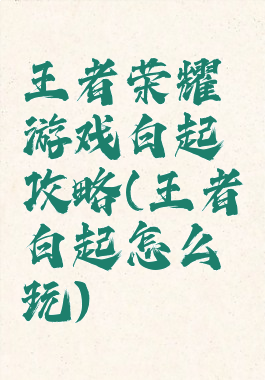 王者荣耀
游戏白起
攻略(王者
白起怎么
玩)